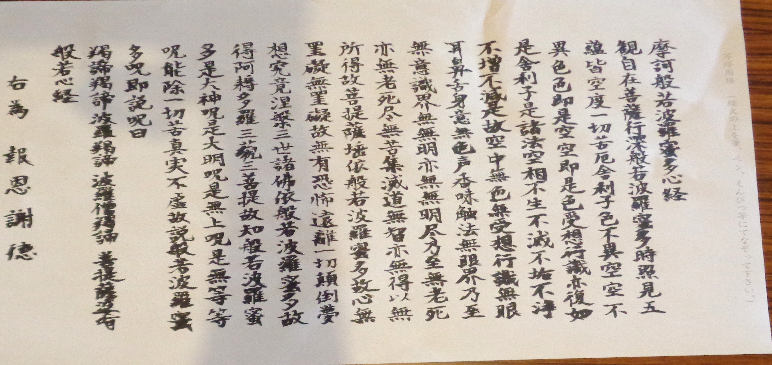 摩訶般若波羅蜜多心経
観自在菩薩行深般若波羅蜜多時照見五
蘊皆空度一切苦厄舎利子色不異空空不
異色色即是空空即是色受想行識亦復如
是舎利子是諸法空相不生不滅不垢不浄
不増不減是故空中無色無受想行識無眼
耳鼻舌身意無色声香味触法無眼界乃至
無意識界無無明亦無無明尽乃至無老死
亦無老死尽無苦集滅道無智亦無得以無
所得故菩提薩埵依般若波羅蜜多故心無
罣礙無罣礙故無有恐怖遠離一切顛倒夢
想究竟涅槃三世諸佛依般若波羅蜜多故
得阿耨多羅三藐三菩提故知般若波羅蜜
多是大神呪是大明呪是無上呪是無等等
呪能除一切苦真実不虚故説般若波羅蜜
多呪即説呪曰
羯諦羯諦 波羅羯諦 波羅僧羯諦 菩提薩婆訶
般若心経
右為 報恩謝徳